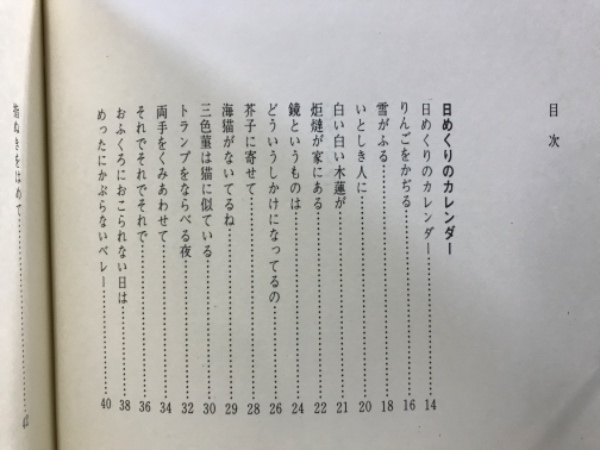 目次
日めくりのカレンダー
日めくりのカレンダー……………14
りんごをかぢる……………16
雪がふる……………18
いとしき人に……………20
白い白い木蓮が……………21
炬燵が家にある……………22
鏡というものは……………24
どういうしかけになってるの……………26
芥子に寄せて……………28
海猫がないてるね……………29
三色菫は猫に似ている……………30
トランプをならべる夜……………32
両手をくみあわせて……………34
それでそれでそれで……………36
おふくろにおこられない日は……………38
めったにかぶらないベレー……………40
指ぬきをはめて……………42